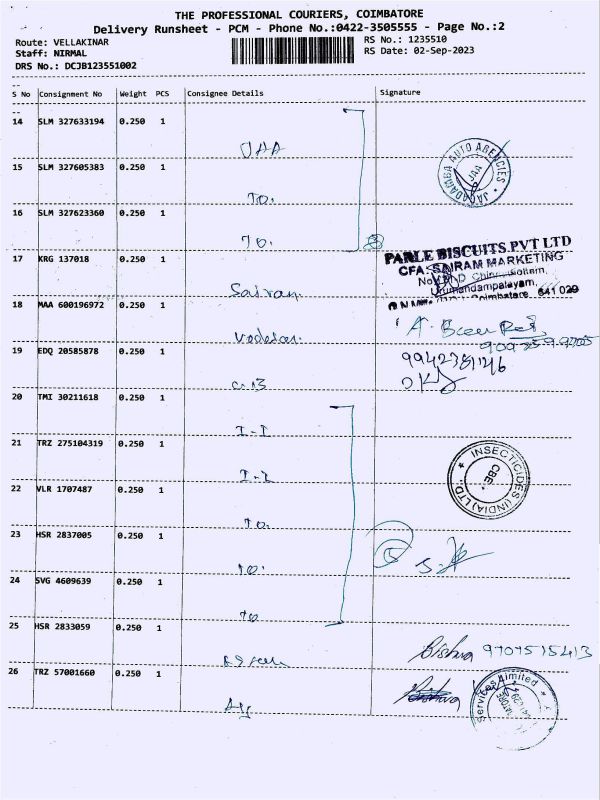 THE PROFESSIONAL COURIERS, COIMBATORE
Delivery Runsheet - PCM - Phone No.:0422-3505555 - Page No.:2
Route: VELLAKINAR
RS No.: 1235510
Staff: NIRMAL
RS Date: 02-Sep-2023
DRS No.: DCJB123551002
S No Consignment No Weight PCS Consignee Details Signature
14 SLM 327633194 0.250 1
JAA
JAGADAMBA AUTO AGENCIES
JAA
15 SLM 327605383 0.250 1
To.
16 SLM 327623360 0.250 1
To.
3
17 KRG 137018 0.250 1
Sairam
PARLE BISCUITS PVT LTD
CFA: SAIRAM MARKETING
Urumandampalayam,
Coimbatore. 641 029
18 MAA 600196972 0.250 1
19 EDQ 20585878 0.250 1
9942781246
20 TMI 30211618 0.250 1
I-I
21 TRZ 275104319 0.250 1
I-I
INSECTICIDES (INDIA) LTD
CBE
22 VLR 1707487 0.250 1
To.
23 HSR 2837005 0.250 1
To.
5
24 SVG 4609639 0.250 1
To
25 HSR 2833059 0.250 1
Bishwa 9707515413
26 TRZ 57001660 0.250 1
Bishwa
Services Limited